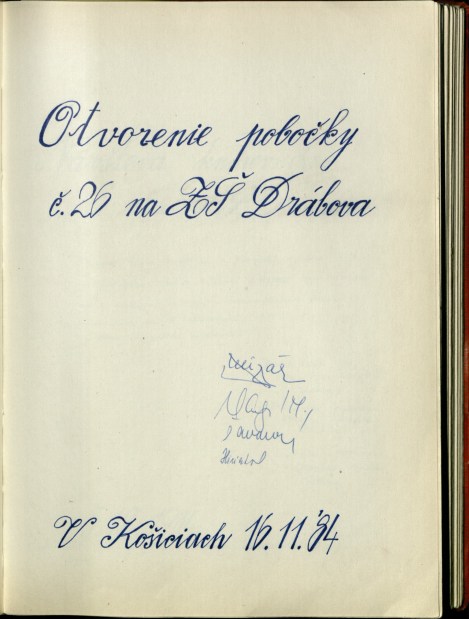 Otvorenie pobočky
č. 26 na ZŠ Drábova
V Košiciach 16. 11. '84